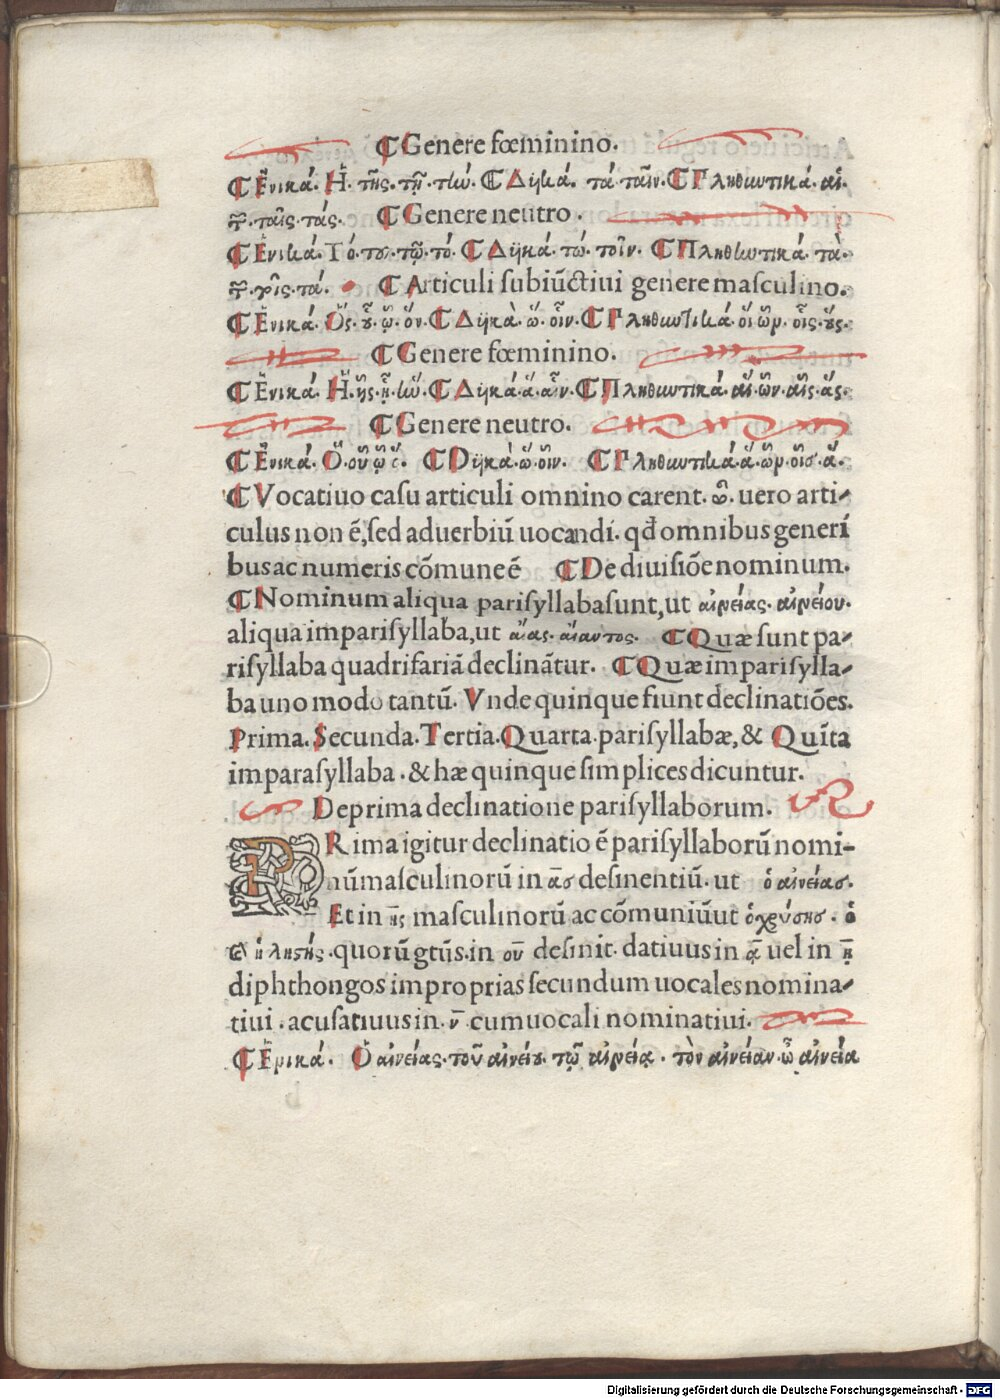 ¶ Genere fœminino.
¶ Ἑνικά. Ἡ. τῆς. τῇ. τὼ. ¶ Δϋικά. τά ταῖν. ¶ Πληθωτικά. αἱ.
ταῖς. τάς. ¶ Genere neutro.
¶ Ἑνικά. Τό. του. τῷ. τό. ¶ Δϋικά. τώ. τοῖν. ¶ Πληθωτικά. τὰ.
τά. ¶ Articuli ſubiūctiui genere maſculino.
¶ Ἑνικά. Ὅς. ᾧ. ὅν. ¶ Δϋικὰ. ὥ. οἷν. ¶ Πληθωτικά οἵ ὧν. οἷς.
¶ Genere fœminino.
¶ Ἑνικά. Ἥ. ἧς. ᾗ. ¶ Δϋικά. ἅ. αἷν. ¶ Πληθωτικά. αἵ. ὧν. αἷς. ἅς.
¶ Genere neutro.
¶ Ἑνικά. Ὅ. οὗ ᾧ ¶ Dϋικὰ. ὥ. οἷν. ¶ Πληθωτικά. ἅ. ὧν. οἷσ. ἅ.
¶ Vocatiuo caſu articuli omnino carent. ὦ. uero arti-
culus non ē, ſed aduerbiū uocandi. qđ omnibus generi
bus ac numeris cōmune ē ¶ De diuiſiōe nominum.
¶ Nominum aliqua pariſyllaba ſunt, ut αἰνείας. αἰνείου.
aliqua impariſyllaba, ut αἴας. αἴαντος. ¶ Quæ ſunt pa-
riſyllaba quadrifariā declinātur. ¶ Quæ impariſylla-
ba uno modo tantū. Vnde quinque fiunt declinatiōes.
Prima. Secunda. Tertia. Quarta. pariſyllabæ, & Quīta
imparaſyllaba. & hæ quinque ſimplices dicuntur.
De prima declinatione pariſyllaborum.
PRima igitur declinatio ē pariſyllaborū nomi-
nū maſculinorū in ᾱσ deſinentiū. ut ὁ αἰνείας.
Et in ης maſculinorū ac cōmuniū ut ὁ χρύσησ. ὁ
ληστής. quorū gtūs. in ου deſinit. datiuus in ᾳ uel in ῃ
diphthongos improprias ſecundum uocales nomina-
tiui. acuſatiuus in. ν̄ cum uocali nominatiui.
¶ Ἑνικά. Ὁ αἰνείας. τοῦ αἰνείου. τῷ αἰνείᾳ. τὸν αἰνείαν. ὦ αἰνεία
Digitalisierung gefördert durch die Deutsche Forschungsgemeinschaft - DFG